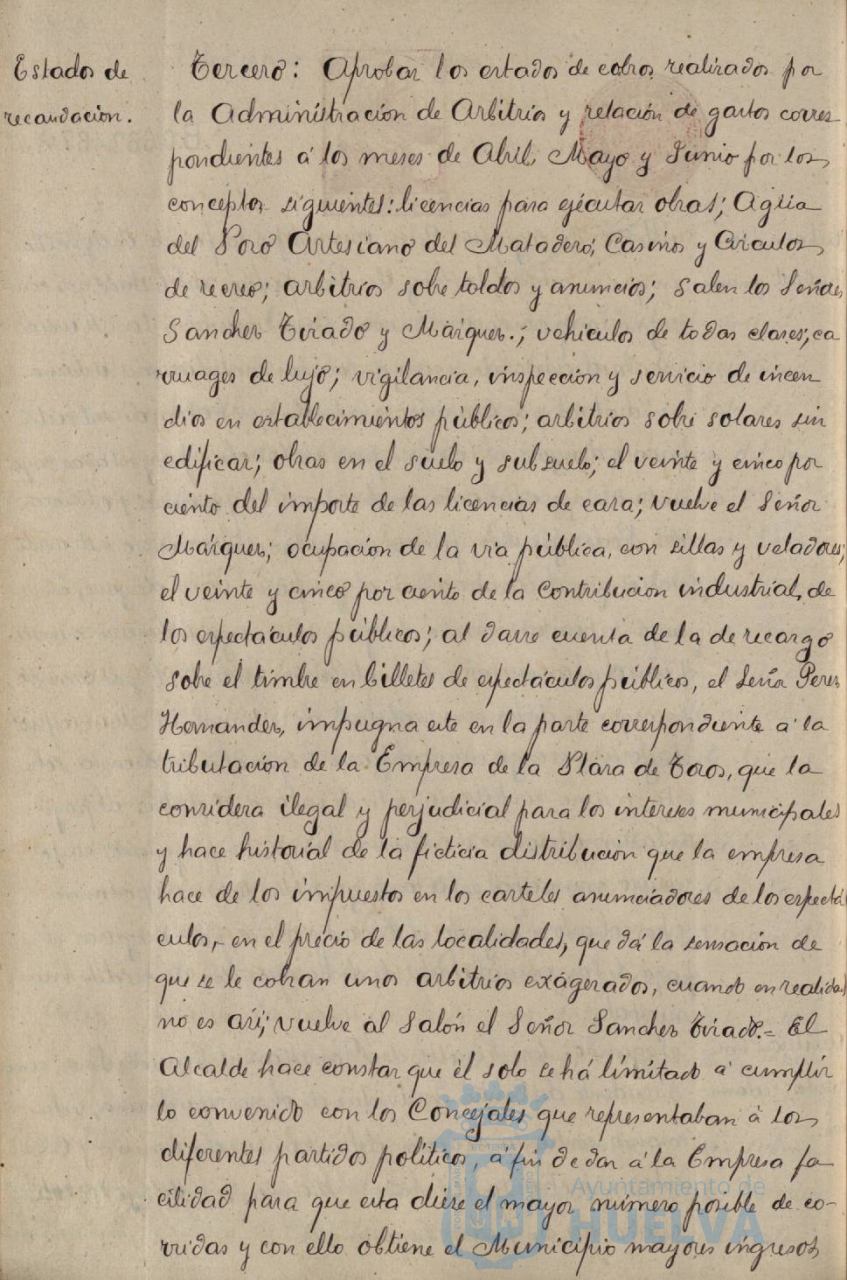 Estados de
recaudación.
Tercero: Aprobar los estados de cobros realizados por
la Administración de Arbitrios y relación de gastos corres
pondientes á los meses de Abril, Mayo y Junio por los
conceptos siguientes: licencias para ejecutar obras; Agua
del Pozo Artesiano del Matadero; Casinos y Circulos
de recreo; arbitrios sobre toldos y anuncios; salen los Señores
Sanchez Tirado y Márquez.; vehiculos de todas clases; ca
rruages de lujo; vigilancia, inspección y servicio de incen
dios en establecimientos públicos; arbitrios sobre solares sin
edificar; obras en el suelo y subsuelo; el veinte y cinco por
ciento del importe de las licencias de caza; vuelve el Señor
Márquez; ocupación de la via pública, con sillas y veladores;
el veinte y cinco por ciento de la Contribucion industrial, de
los espectáculos públicos; al darse cuenta de la de recargo
sobre el timbre en billetes de espectáculos públicos, el Señor Perez
Hernandez, impugna este en la parte correspondiente á la
tributación de la Empresa de la Plaza de Toros, que la
considera ilegal y perjudicial para los intereses municipales
y hace historial de la ficticia distribución que la empresa
hace de los impuestos en los carteles anunciadores de los espectá
culos, en el precio de las localidades, que dá la sensación de
que se le cobran unos arbitrios exagerados, cuando en realidad
no es así; vuelve al Salón el Señor Sanchez Tirado.= El
Alcalde hace constar que él solo se há límitado á cumplir
lo convenido con los Concejales que representaban á los
diferentes partidos políticos, á fin de dar á la Empresa fa
cilidad para que esta diese el mayor número posible de co-
rridas y con ello obtiene el Municipio mayores ingresos
Ayuntamiento de
HUELVA